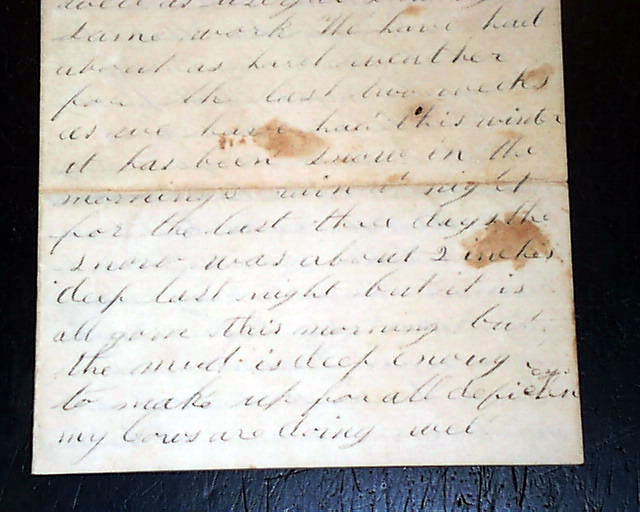 well as
same work We have had
about as hard weather
for the last two weeks
as we have had this winter
it has been snow in the
mornings rain at night
for the last three days the
snow was about 2 inches
deep last night but it is
all gone this morning but
the mud is deep enoug
to make up for all
my Cows are doing well